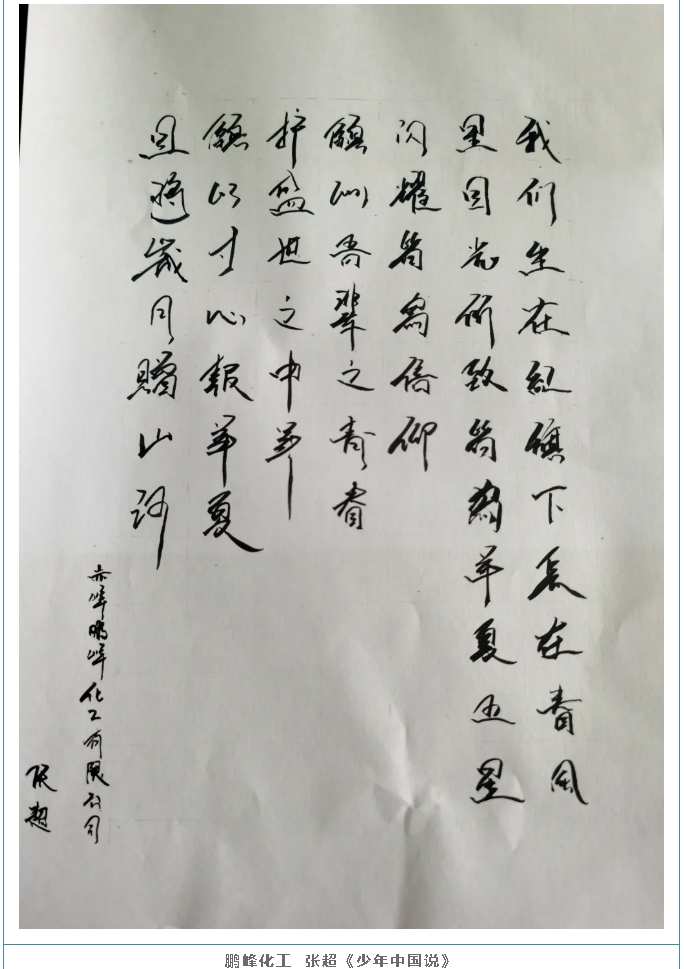 我们生在红旗下长在春风
里目光所致皆為華夏五星
闪耀皆為信仰
願以吾辈之青春
护盛世之中華
願以寸心報華夏
且將歲月贈山河
赤峰鹏峰化工有限公司
张超
鹏峰化工 张超《少年中国说》